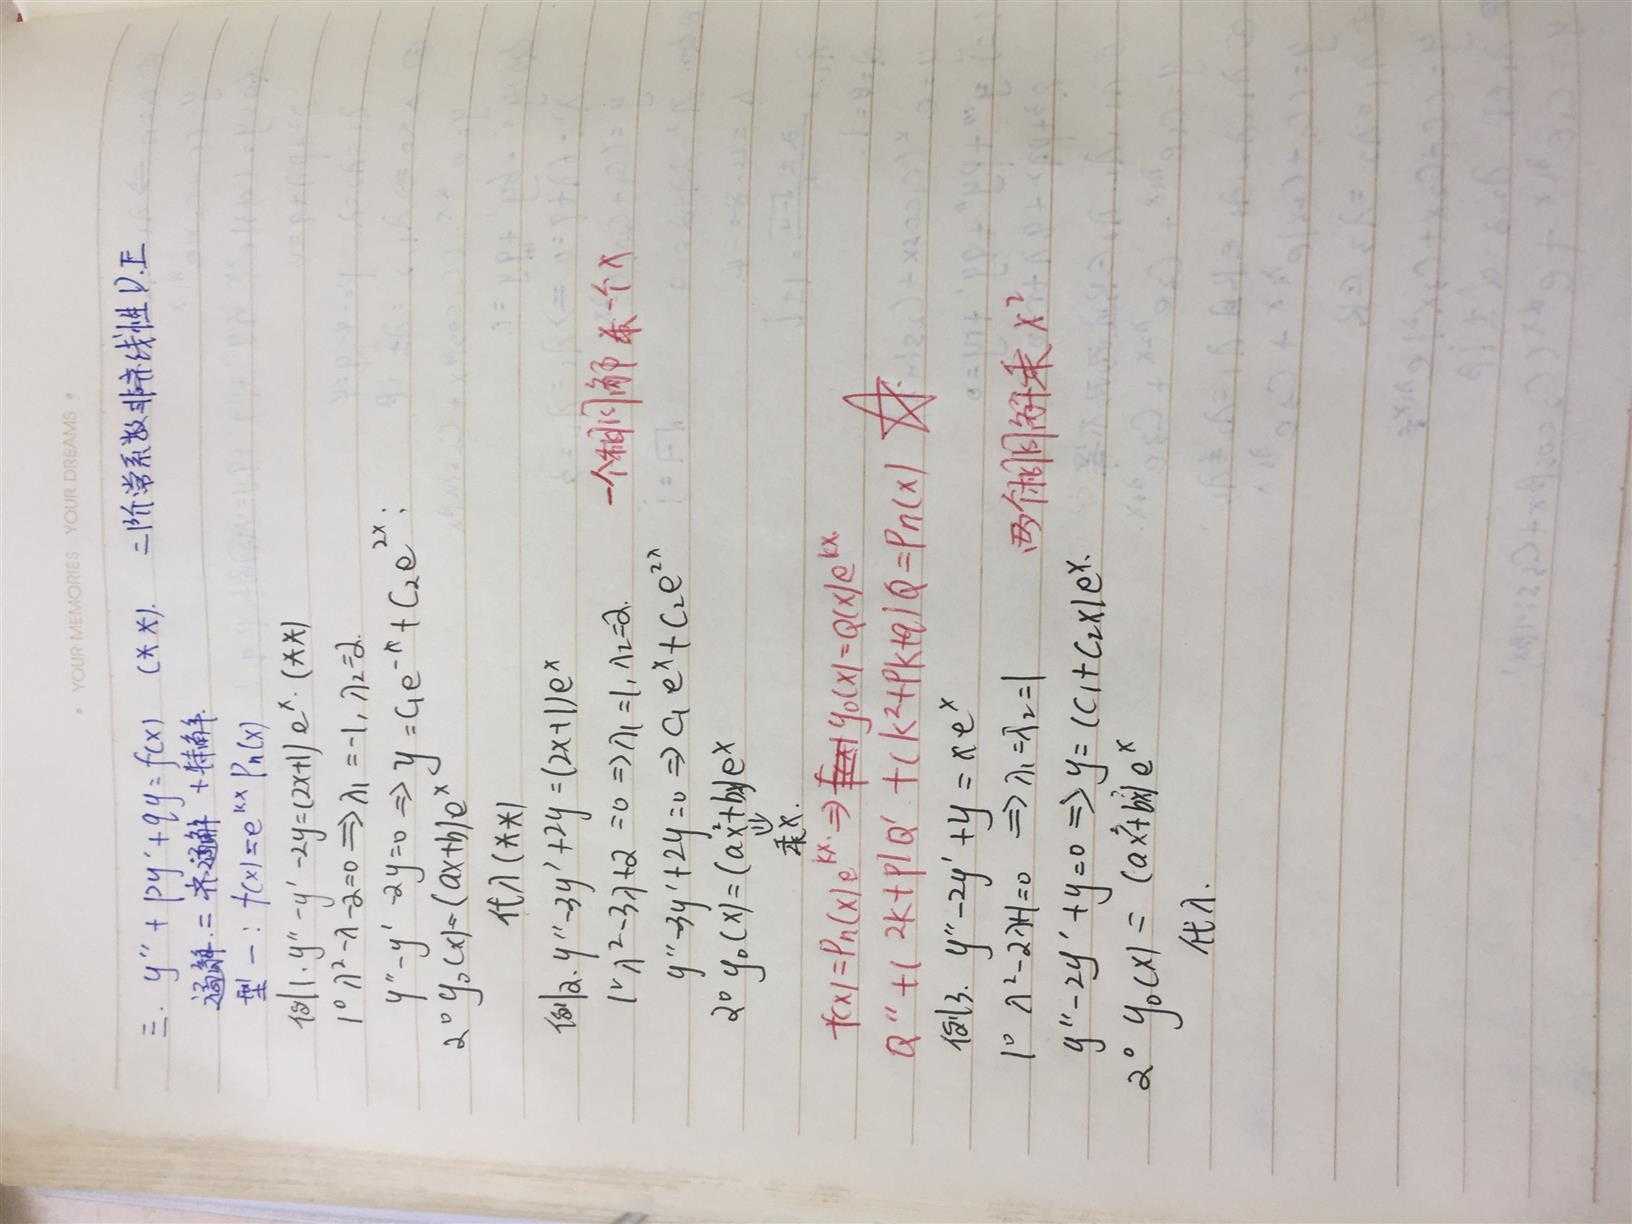 • YOUR MEMORIES YOUR DREAMS •
三. y''+py'+qy=f(x) (**). 二阶常系数非齐线性D.E
通解=齐通解+特解.
型一: f(x)=e^{kx}Pn(x)
例1. y''-y'-2y=(2x+1)e^x. (**)
1° λ²-λ-2=0⇒λ₁=-1, λ₂=2.
y''-y'-2y=0⇒y=C₁e^{-x}+C₂e^{2x};
2° y₀(x)=(ax+b)e^x
代入(**)
例2. y''-3y'+2y=(2x+1)e^x
1° λ²-3λ+2=0⇒λ₁=1, λ₂=2. 一个相同解乘一个x
y''-3y'+2y=0⇒C₁e^x+C₂e^{2x}
2° y₀(x)=(ax²+bx)e^x
⇓
乘x.
f(x)=Pn(x)e^{kx}.⇒y₀(x)=Q(x)e^{kx}
Q''+(2k+p)Q'+(k²+pk+q)Q=Pn(x) ☆
例3. y''-2y'+y=xe^x
1° λ²-2λ+1=0⇒λ₁=λ₂=1 两个相同解乘x²
y''-2y'+y=0⇒y=(C₁+C₂x)e^x.
2° y₀(x)=(ax³+bx²)e^x
代入.